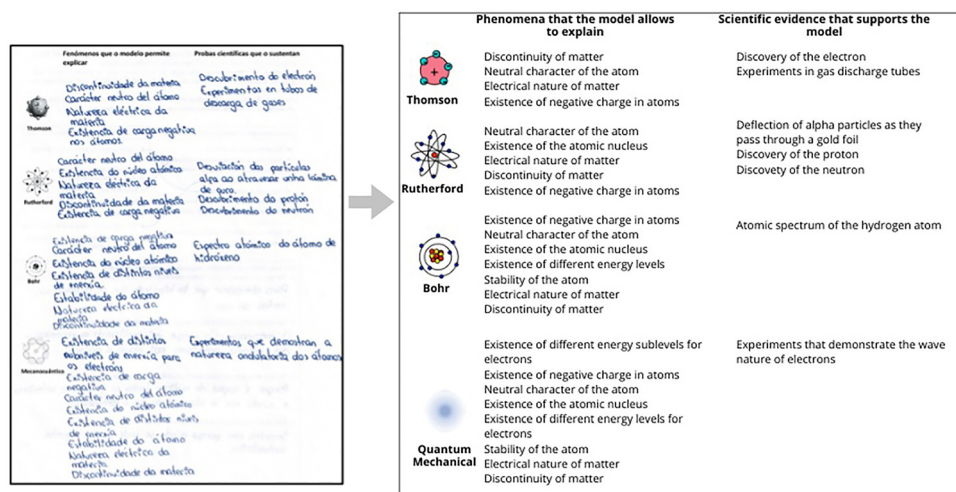 Fenómenos que o modelo permite
explicar
Probas científicas que o sustentan
Discontinuidade da materia
Carácter neutro del átomo
Natureza eléctrica da
materia
Existencia de carga negativa
nos átomos.
Descubrimento do electrón
Experimentos en tubos de
descarga de gases
Thomson
Carácter neutro del átomo
Existencia do núcleo atómico
Natureza eléctrica da
materia
Discontinuidade da materia
Existencia de carga negativa
Desviación das partículas
alpa ao atravesar unha lámina
de ouro.
Descubrimento do protón
Descubrimento do neutrón
Rutherford
Existencia de carga negativa
Carácter neutro do átomo
Existencia do núcleo atómico
Existencia de distintos niveis
de enerxía
Estabilidade do átomo
Natureza eléctrica da
materia
Discontinuidade da materia
Espectro atómico do átomo de
hidróxeno
Bohr
Existencia de distintos
subniveis de enerxía para
os electróns
Existencia de carga
negativa
Carácter neutro do átomo
Existencia do núcleo atómico
Existencia de distintos niveis
de enerxía
Estabilidade do átomo
Natureza eléctrica da
materia
Discontinuidade da materia
Experimentos que demostran a
natureza ondulatoria dos átomos
Mecanocuántico
Phenomena that the model allows
to explain
Scientific evidence that supports the
model
Discontinuity of matter
Neutral character of the atom
Electrical nature of matter
Existence of negative charge in atoms
Discovery of the electron
Experiments in gas discharge tubes
Thomson
Neutral character of the atom
Existence of the atomic nucleus
Electrical nature of matter
Discontinuity of matter
Existence of negative charge in atoms
Deflection of alpha particles as they
pass through a gold foil
Discovery of the proton
Discovety of the neutron
Rutherford
Existence of negative charge in atoms
Neutral character of the atom
Existence of the atomic nucleus
Existence of different energy levels
Stability of the atom
Electrical nature of matter
Discontinuity of matter
Atomic spectrum of the hydrogen atom
Bohr
Existence of different energy sublevels for
electrons
Existence of negative charge in atoms
Neutral character of the atom
Existence of the atomic nucleus
Existence of different energy levels for
electrons
Stability of the atom
Electrical nature of matter
Discontinuity of matter
Experiments that demonstrate the wave
nature of electrons
Quantum
Mechanical